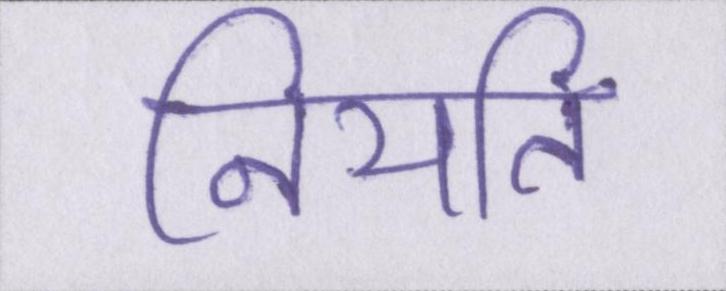 नियति